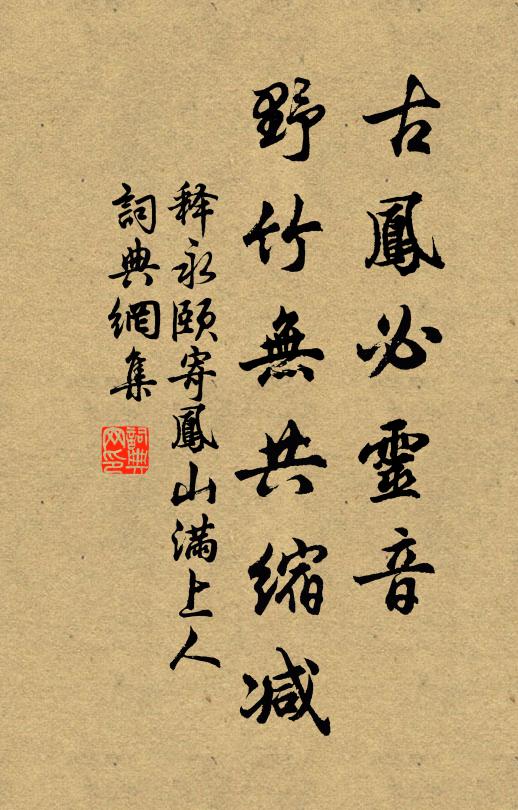 古鳳必靈音
野竹無共缩减
释永颐寄鳳山满上人
詞典網集
詞典
网印